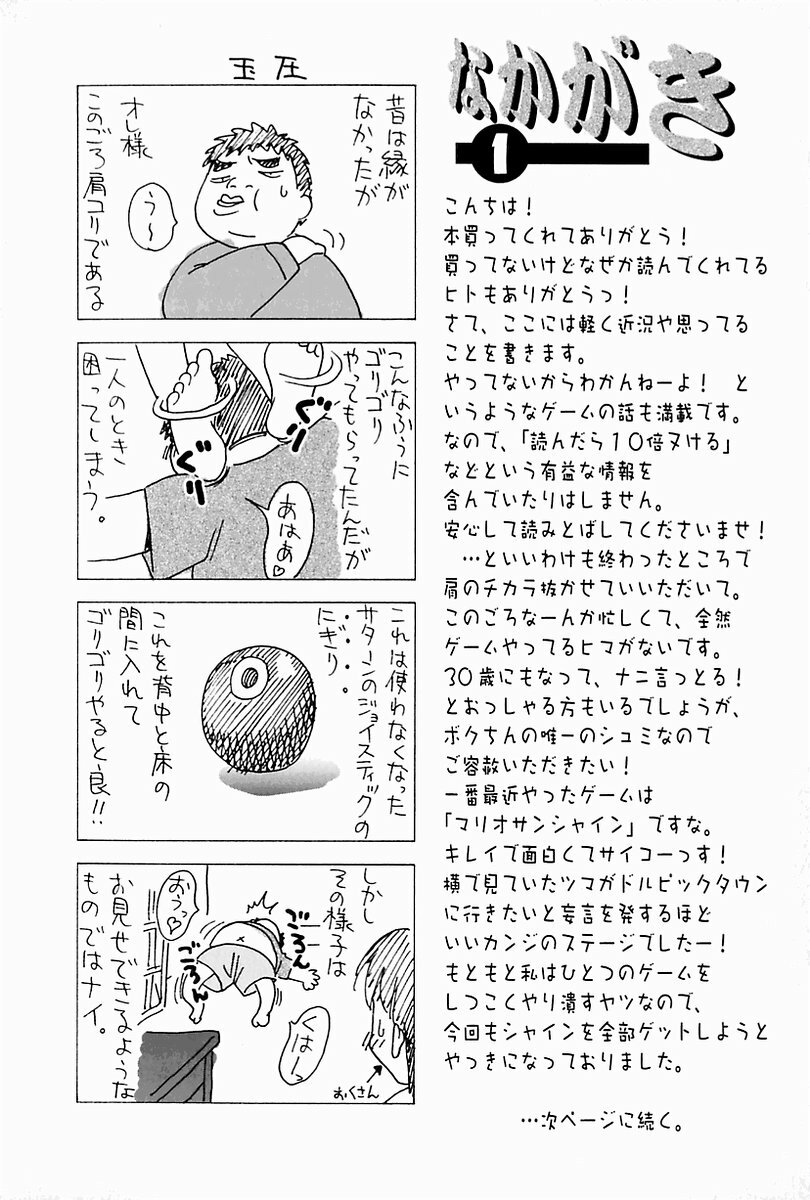 なかがき
1
こんちは！
本買ってくれてありがとう！
買ってないけどなぜか読んでくれてる
ヒトもありがとうっ！
さて、ここには軽く近況や思ってる
ことを書きます。
やってないからわかんねーよ！　と
いうようなゲームの話も満載です。
なので、「読んだら１０倍ヌける」
などという有益な情報を
含んでいたりはしません。
安心して読みとばしてくださいませ！
…といいわけも終わったところで
肩のチカラ抜かせていいただいて。
このごろなーんか忙しくて、全然
ゲームやってるヒマがないです。
30歳にもなって、ナニ言っとる！
とおっしゃる方もいるでしょうが、
ボクちんの唯一のシュミなので
ご容赦いただきたい！
一番最近やったゲームは
「マリオサンシャイン」ですな。
キレイで面白くてサイコーっす！
横で見ていたツマがドルピックタウン
に行きたいと妄言を発するほど
いいカンジのステージでしたー！
もともと私はひとつのゲームを
しつこくやり潰すヤツなので、
今回もシャインを全部ゲットしようと
やっきになっておりました。
…次ページに続く。
玉圧
昔は縁が
なかったが
オレ様
このごろ肩コリである
う～
こんなふうに
ゴリゴリ
やってもらってたんだが
ぐっ
ぐっ
あはあ♡
一人のとき
困ってしまう。
これは使わなくなった
サターンのジョイスティックの
にぎり。
これを背中と床の
間に入れて
ゴリゴリやると良!!
しかし
その様子は
ごろん
ごろん
おうっ♡
くはーっ
おくさん
お見せできるような
ものではナイ。